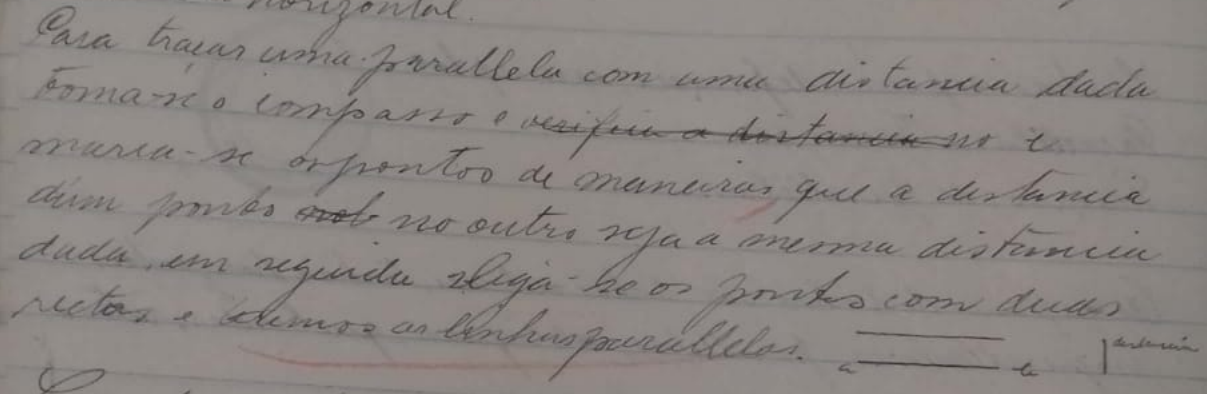 horizontal.
Para traçar uma parallela com uma distancia dada
toma-se o compasso e verifica a distancia no e
marca-se os pontos de maneiras que a distancia
dum ponto no outro seja a mesma distancia
dada, em seguida liga-se os pontos com duas
rectas e temos as linhas parallelas.
a